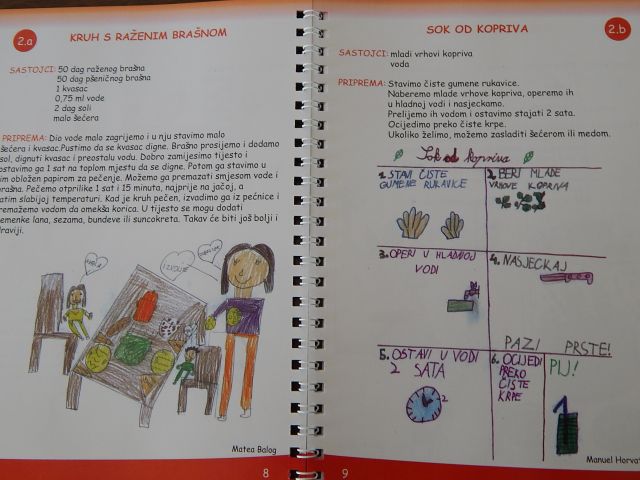 2.a
KRUH S RAŽENIM BRAŠNOM
SASTOJCI: 50 dag raženog brašna
50 dag pšeničnog brašna
1 kvasac
0,75 ml vode
2 dag soli
malo šećera
PRIPREMA: Dio vode malo zagrijemo i u nju stavimo malo
šećera i kvasac.Pustimo da se kvasac digne. Brašno prosijemo i dodamo
sol, dignuti kvasac i preostalu vodu. Dobro zamijesimo tijesto i
ostavimo ga 1 sat na toplom mjestu da se digne. Potom ga stavimo u
lim obložen papirom za pečenje. Možemo ga premazati smjesom vode i
brašna. Pečemo otprilike 1 sat i 15 minuta, najprije na jačoj, a
zatim slabijoj temperaturi. Kad je kruh pečen, izvadimo ga iz pećnice i
premažemo vodom da omekša korica. U tijesto se mogu dodati
sjemenke lana, sezama, bundeve ili suncokreta. Takav će biti još bolji i
zdraviji.
Matea Balog
8
2.b
SOK OD KOPRIVA
SASTOJCI: mladi vrhovi kopriva
voda
PRIPREMA: Stavimo čiste gumene rukavice.
Naberemo mlade vrhove kopriva, operemo ih
u hladnoj vodi i nasjeckamo.
Prelijemo ih vodom i ostavimo stajati 2 sata.
Ocijedimo preko čiste krpe.
Ukoliko želimo, možemo zasladiti šećerom ili medom.
Sok od kopriva
1. STAVI ČISTE
GUMENE RUKAVICE
2. BERI MLADE
VRHOVE KOPRIVA
3. OPERI U HLADNOJ
VODI
4. NASJECKAJ
PAZI PRSTE!
5. OSTAVI U VODI
2 SATA
2
6. OCIJEDI
PREKO
ČISTE
KRPE
PIJ!
Manuel Horvat
9